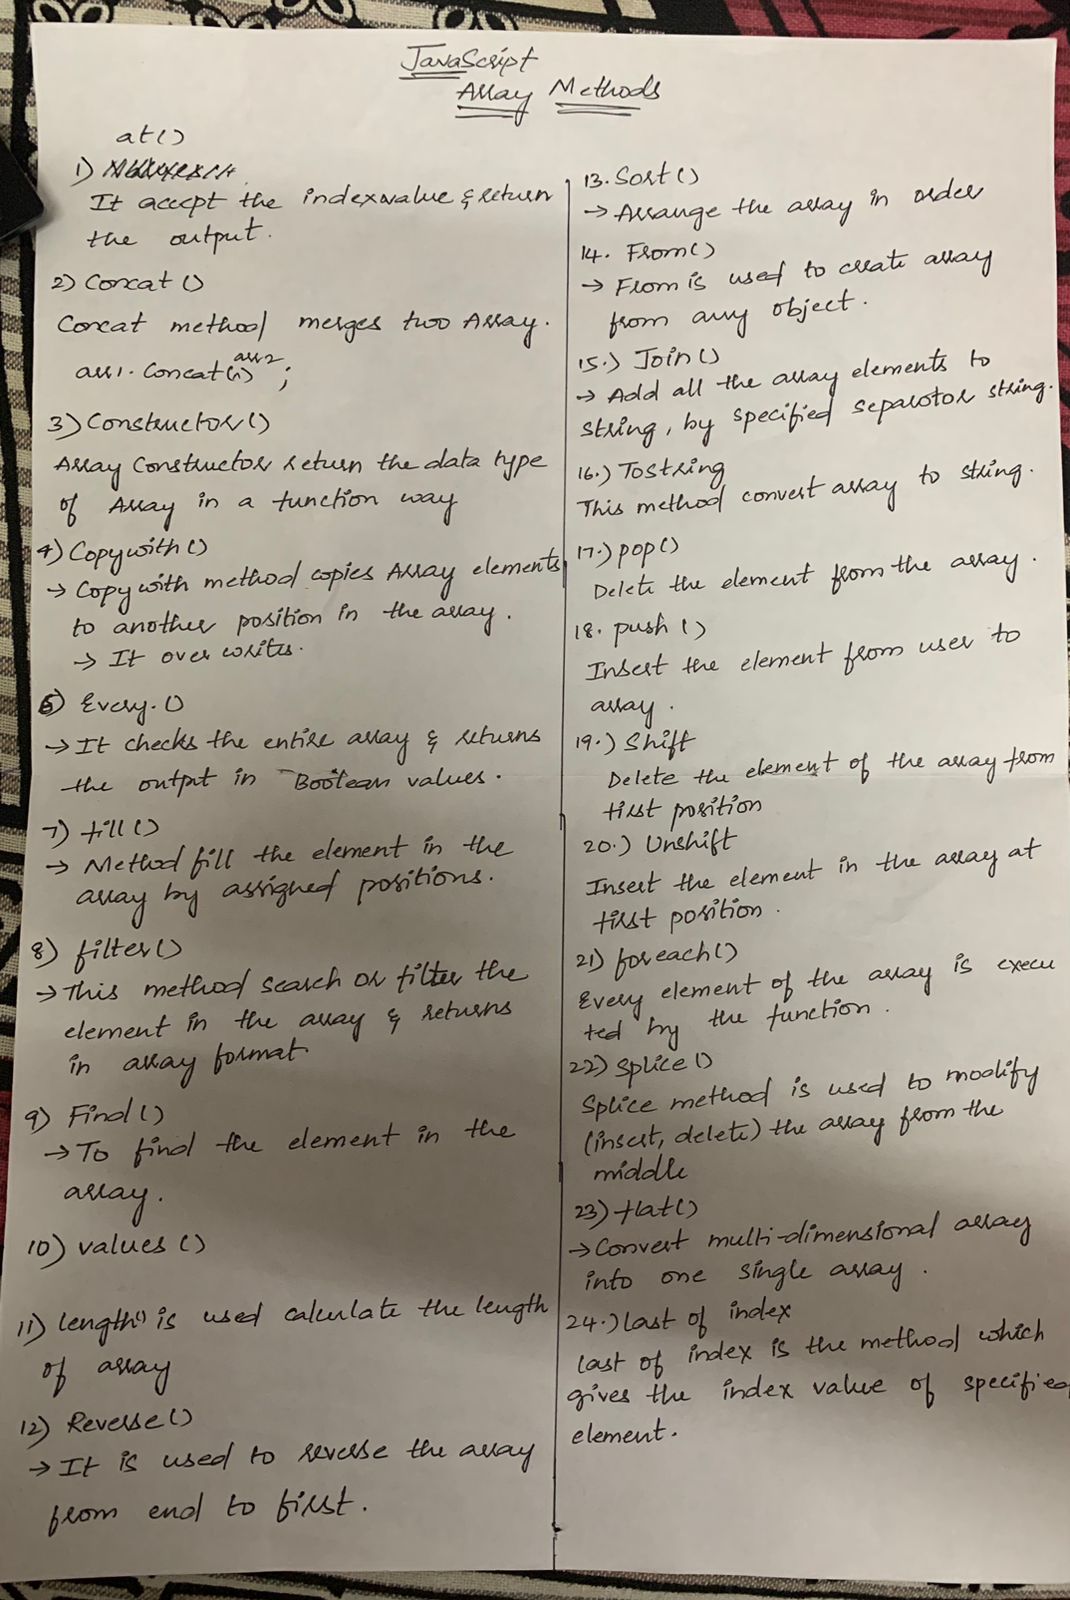 JavaScript
Array Methods
at()
1)
It accept the indexvalue & return
the output.
2) Concat ()
Concat method merges two Array.
arr1. Concat(n) arr2 ;
3) Constructor()
Array Constructor return the data type
of Array in a function way
4) Copywith ()
→ Copy with method copies Array elements
to another position in the array.
→ It over writes.
6) Every. ()
→ It checks the entire array & returns
the output in Boolean values.
7) fill ()
→ Method fill the element in the
array by assigned positions.
8) filter()
→ This method search or filter the
element in the array & returns
in array format
9) Find ()
→ To find the element in the
array.
10) values ()
11) length() is used calculate the length
of array
12) Reverse()
→ It is used to reverse the array
from end to first.
13. Sort ()
→ Arrange the array in order
14. From()
→ From is used to create array
from any object.
15.) Join ()
→ Add all the array elements to
string, by specified separator string.
16.) Tostring
This method convert array to string.
17.) pop()
Delete the element from the array.
18. push ()
Insert the element from user to
array.
19.) Shift
Delete the element of the array from
first position
20.) Unshift
Insert the element in the array at
first position.
21) foreach()
Every element of the array is execu
ted by the function.
22) Splice ()
Splice method is used to modify
(insert, delete) the array from the
middle
23) flat()
→ Convert multi-dimensional array
into one single array.
24.) last of index
last of index is the method which
gives the index value of specified
element.